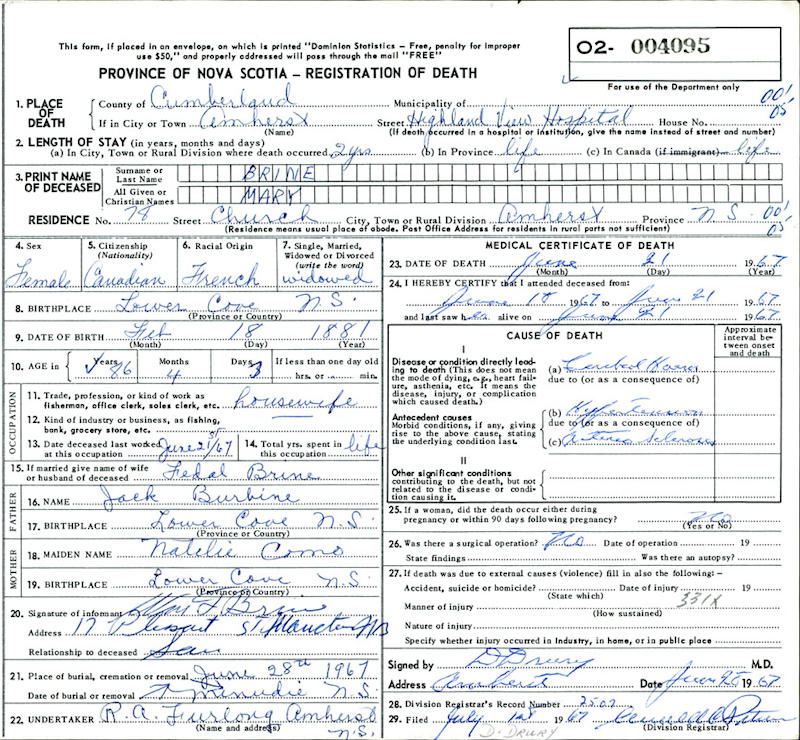 This form, if placed in an envelope, on which is printed "Dominion Statistics – Free, penalty for improper
use $50," and properly addressed will pass through the mail "FREE"
O2- 004095
PROVINCE OF NOVA SCOTIA – REGISTRATION OF DEATH
For use of the Department only
1. PLACE OF DEATH County of Cumberland Municipality of 00'
If in City or Town Amherst (Name) Street Highland View Hospital House No. 05
(If death occurred in a hospital or institution, give the name instead of street and number)
2. LENGTH OF STAY (in years, months and days)
(a) In City, Town or Rural Division where death occurred 2 yrs (b) In Province life (c) In Canada (if immigrant) life
3. PRINT NAME OF DECEASED Surname or Last Name BRINE
All Given or Christian Names MARY
RESIDENCE No. 74 Street Church City, Town or Rural Division Amherst Province N S 00'
(Residence means usual place of abode. Post Office Address for residents in rural parts not sufficient) 05
4. Sex Female
5. Citizenship (Nationality) Canadian
6. Racial Origin French
7. Single, Married, Widowed or Divorced (write the word) widowed
8. BIRTHPLACE Lower Cove N.S.
(Province or Country)
9. DATE OF BIRTH Feb 18 1881
(Month) (Day) (Year)
10. AGE in Years 86 Months 4 Days 3 If less than one day old hrs. or min.
OCCUPATION
11. Trade, profession, or kind of work as fisherman, office clerk, sales clerk, etc. housewife
12. Kind of industry or business, as fishing, bank, grocery store, etc.
13. Date deceased last worked at this occupation June 21/67
14. Total yrs. spent in this occupation life
15. If married give name of wife or husband of deceased Fedal Brine
FATHER
16. NAME Jack Burbine
17. BIRTHPLACE Lower Cove N.S.
(Province or Country)
MOTHER
18. MAIDEN NAME Natelie Como
19. BIRTHPLACE Lower Cove N.S.
(Province or Country)
20. Signature of informant Brine
Address 17 St Moncton NB
Relationship to deceased Son
21. Place of burial, cremation or removal June 28th 1967
Date of burial or removal Minudie N.S.
22. UNDERTAKER R. A. Furlong Amherst
(Name and address) N.S.
MEDICAL CERTIFICATE OF DEATH
23. DATE OF DEATH June 21 1967
(Month) (Day) (Year)
24. I HEREBY CERTIFY that I attended deceased from:
June 1967 to June 21 1967
and last saw her alive on June 21 1967
CAUSE OF DEATH
Approximate interval between onset and death
I
Disease or condition directly leading to death (This does not mean the mode of dying, e.g., heart failure, asthenia, etc. It means the disease, injury, or complication which caused death.)
(a) Cerebral
due to (or as a consequence of)
Antecedent causes
Morbid conditions, if any, giving rise to the above cause, stating the underlying condition last.
(b) Hypertension
due to (or as a consequence of)
(c) Arterio Sclerosis
II
Other significant conditions
contributing to the death, but not related to the disease or condition causing it.
25. If a woman, did the death occur either during
pregnancy or within 90 days following pregnancy? No
(Yes or No)
26. Was there a surgical operation? No Date of operation 19
State findings Was there an autopsy?
27. If death was due to external causes (violence) fill in also the following:–
Accident, suicide or homicide? Date of injury 19
(State which) 331X
Manner of injury
(How sustained)
Nature of injury
Specify whether injury occurred in Industry, in home, or in public place
Signed by D Drury M.D.
Address Amherst Date June 1967
28. Division Registrar's Record Number 2507
29. Filed July 1st 1967
D. DRURY (Division Registrar)